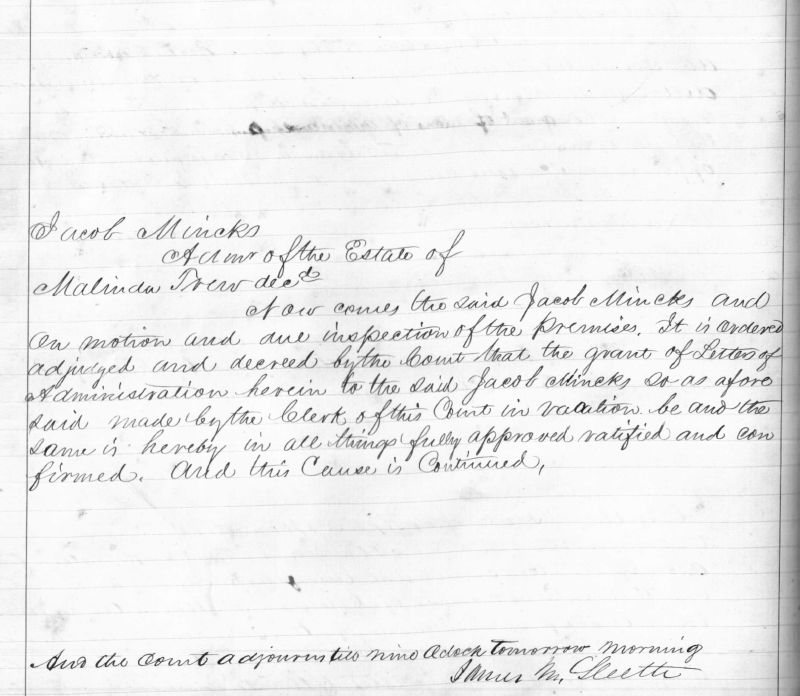 Jacob Mincks
Admr of the Estate of
Malinda Trew decd
Now comes the said Jacob Mincks and
on motion and due inspection of the premises. It is ordered
adjudged and decreed by the Court that the grant of Letters of
Administration herein to the said Jacob Mincks so as afore
said made by the Clerk of this Court in vacation be and the
same is hereby in all things fully approved ratified and con
firmed. And this Cause is Continued,
And the Court adjourns till nine Oclock tomorrow morning
James M. Sleeth